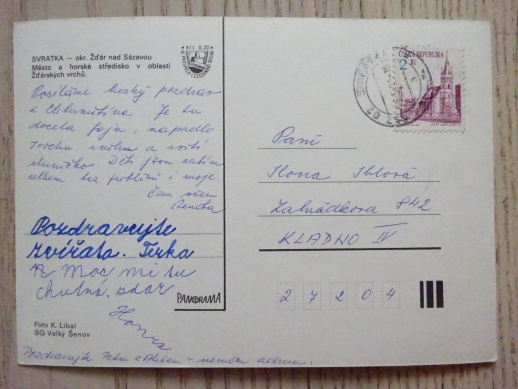 Kčs 0,20
SVRATKA — okr. Žďár nad Sázavou
Město a horské středisko v oblasti
Žďárských vrchů.
Posíláme hezký pozdrav
z Je tu
docela fajn, napadlo
trochu sněhu a svítí
sluníčko. Děti jsou zatím
bez problémů i moje.
Pozdravujte
zvířata. Terka
Moc mi tu
chutná.
Honza
PANORAMA
Foto K. Libal
SG Velký Šenov
Pozdravujte Petru - nemám adresu.
ČESKÁ REPUBLIKA
2 Kč
Paní
Ilona
Zahrádkova 842
KLADNO IV
27204